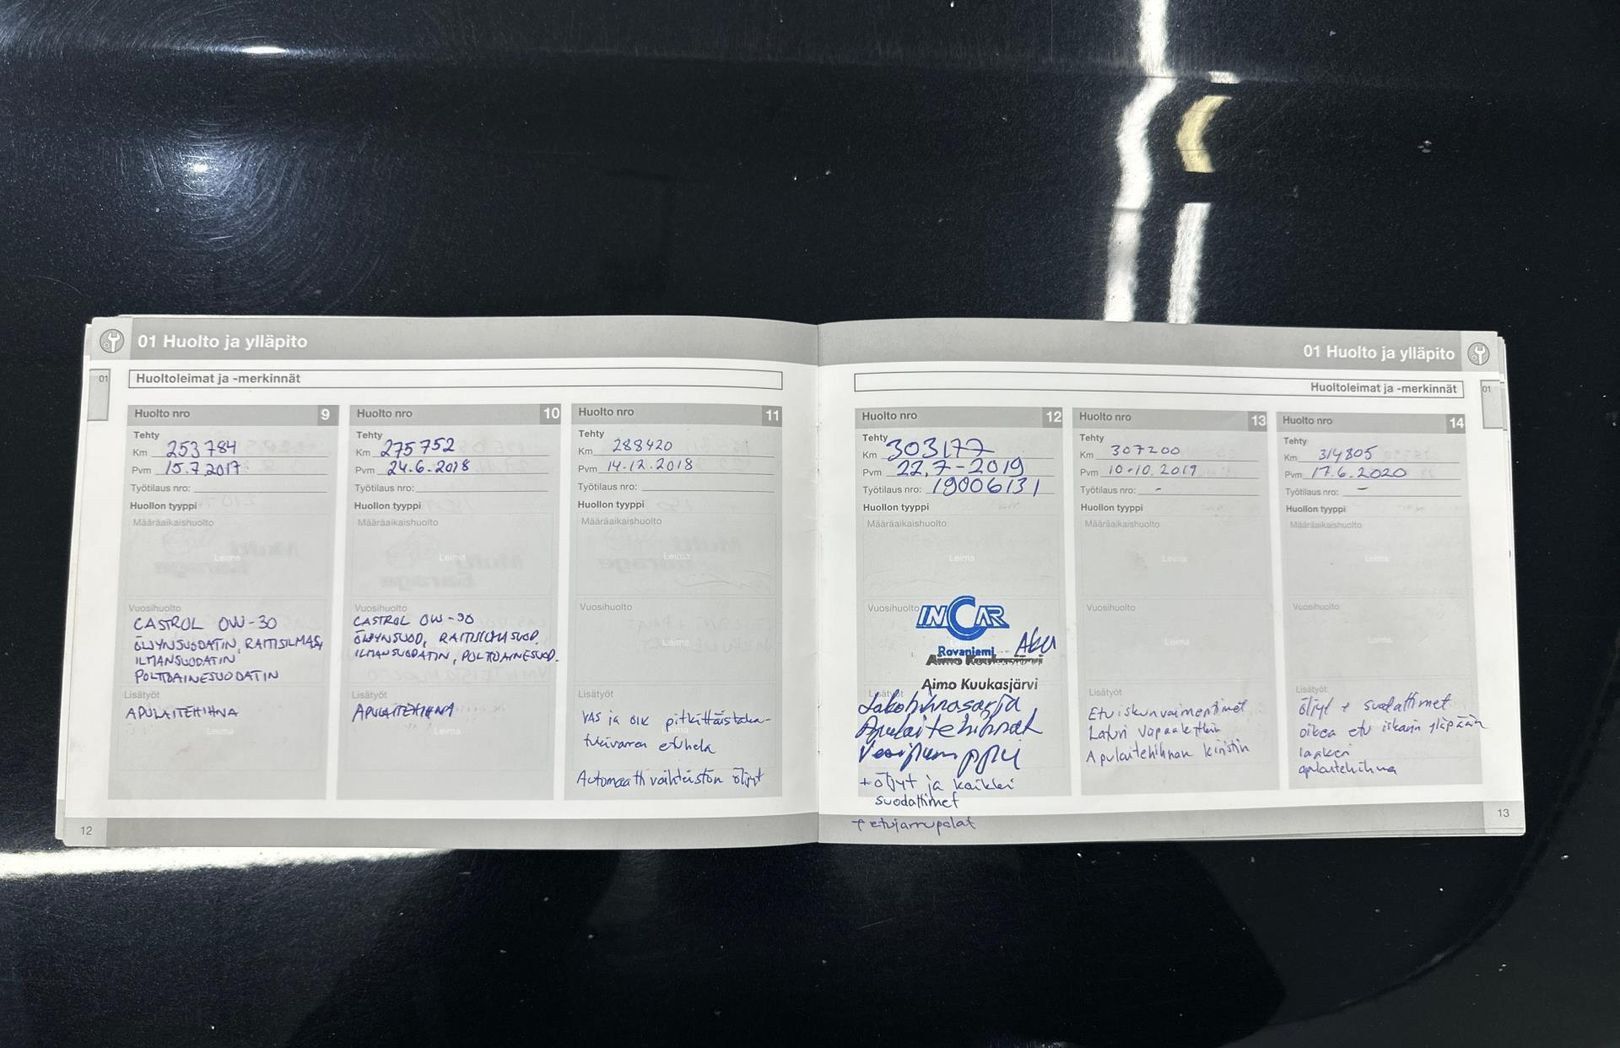 01 Huolto ja ylläpito
01
Huoltoleimat ja -merkinnät
Huolto nro 9
Tehty
Km 253 784
Pvm 15.7.2017
Työtilaus nro:
Huollon tyyppi
Määräaikaishuolto
Leima
Vuosihuolto
CASTROL 0W-30
ÖLJYNSUODATIN, RAITISILMAS,
ILMANSUODATIN
POLTTOAINESUODATIN
Lisätyöt
APULAITEHIHNA
Leima
Huolto nro 10
Tehty
Km 275 752
Pvm 24.6.2018
Työtilaus nro:
Huollon tyyppi
Määräaikaishuolto
Leima
Vuosihuolto
CASTROL 0W-30
ÖLJYNSUOD, RAITISILM SUOD.
ILMANSUODATIN, POLTTOAINESUOD.
Lisätyöt
APULAITEHIHNA
Leima
Huolto nro 11
Tehty
Km 288420
Pvm 14.12.2018
Työtilaus nro:
Huollon tyyppi
Määräaikaishuolto
Leima
Vuosihuolto
Leima
Lisätyöt
vas ja oik pitkittäistuka-
tukivarren etuhela
Automaattivaihteiston öljyt
12
01 Huolto ja ylläpito
01
Huoltoleimat ja -merkinnät
Huolto nro 12
Tehty
Km 303177
Pvm 22.7-2019
Työtilaus nro: 19006131
Huollon tyyppi
Määräaikaishuolto
Leima
Vuosihuolto
INCAR
Rovaniemi
Aimo Kuukasjärvi
Lisätyöt
Jakohihnasarja
Apulaitehihnat
Vesipumppu
+ öljyt ja kaikki
suodattimet
+ etujarrupalat
Huolto nro 13
Tehty
Km 307200
Pvm 10.10.2019
Työtilaus nro: -
Huollon tyyppi
Määräaikaishuolto
Leima
Vuosihuolto
Leima
Lisätyöt
Etuiskunvaimentimet
Laturi vapaakytkin
Apulaitehihnan kiristin
Huolto nro 14
Tehty
Km 314805
Pvm 17.6.2020
Työtilaus nro: -
Huollon tyyppi
Määräaikaishuolto
Leima
Vuosihuolto
Leima
Lisätyöt
öljyt + suodattimet
oikea etu iskarin yläpään
laakeri
apulaitehihna
13